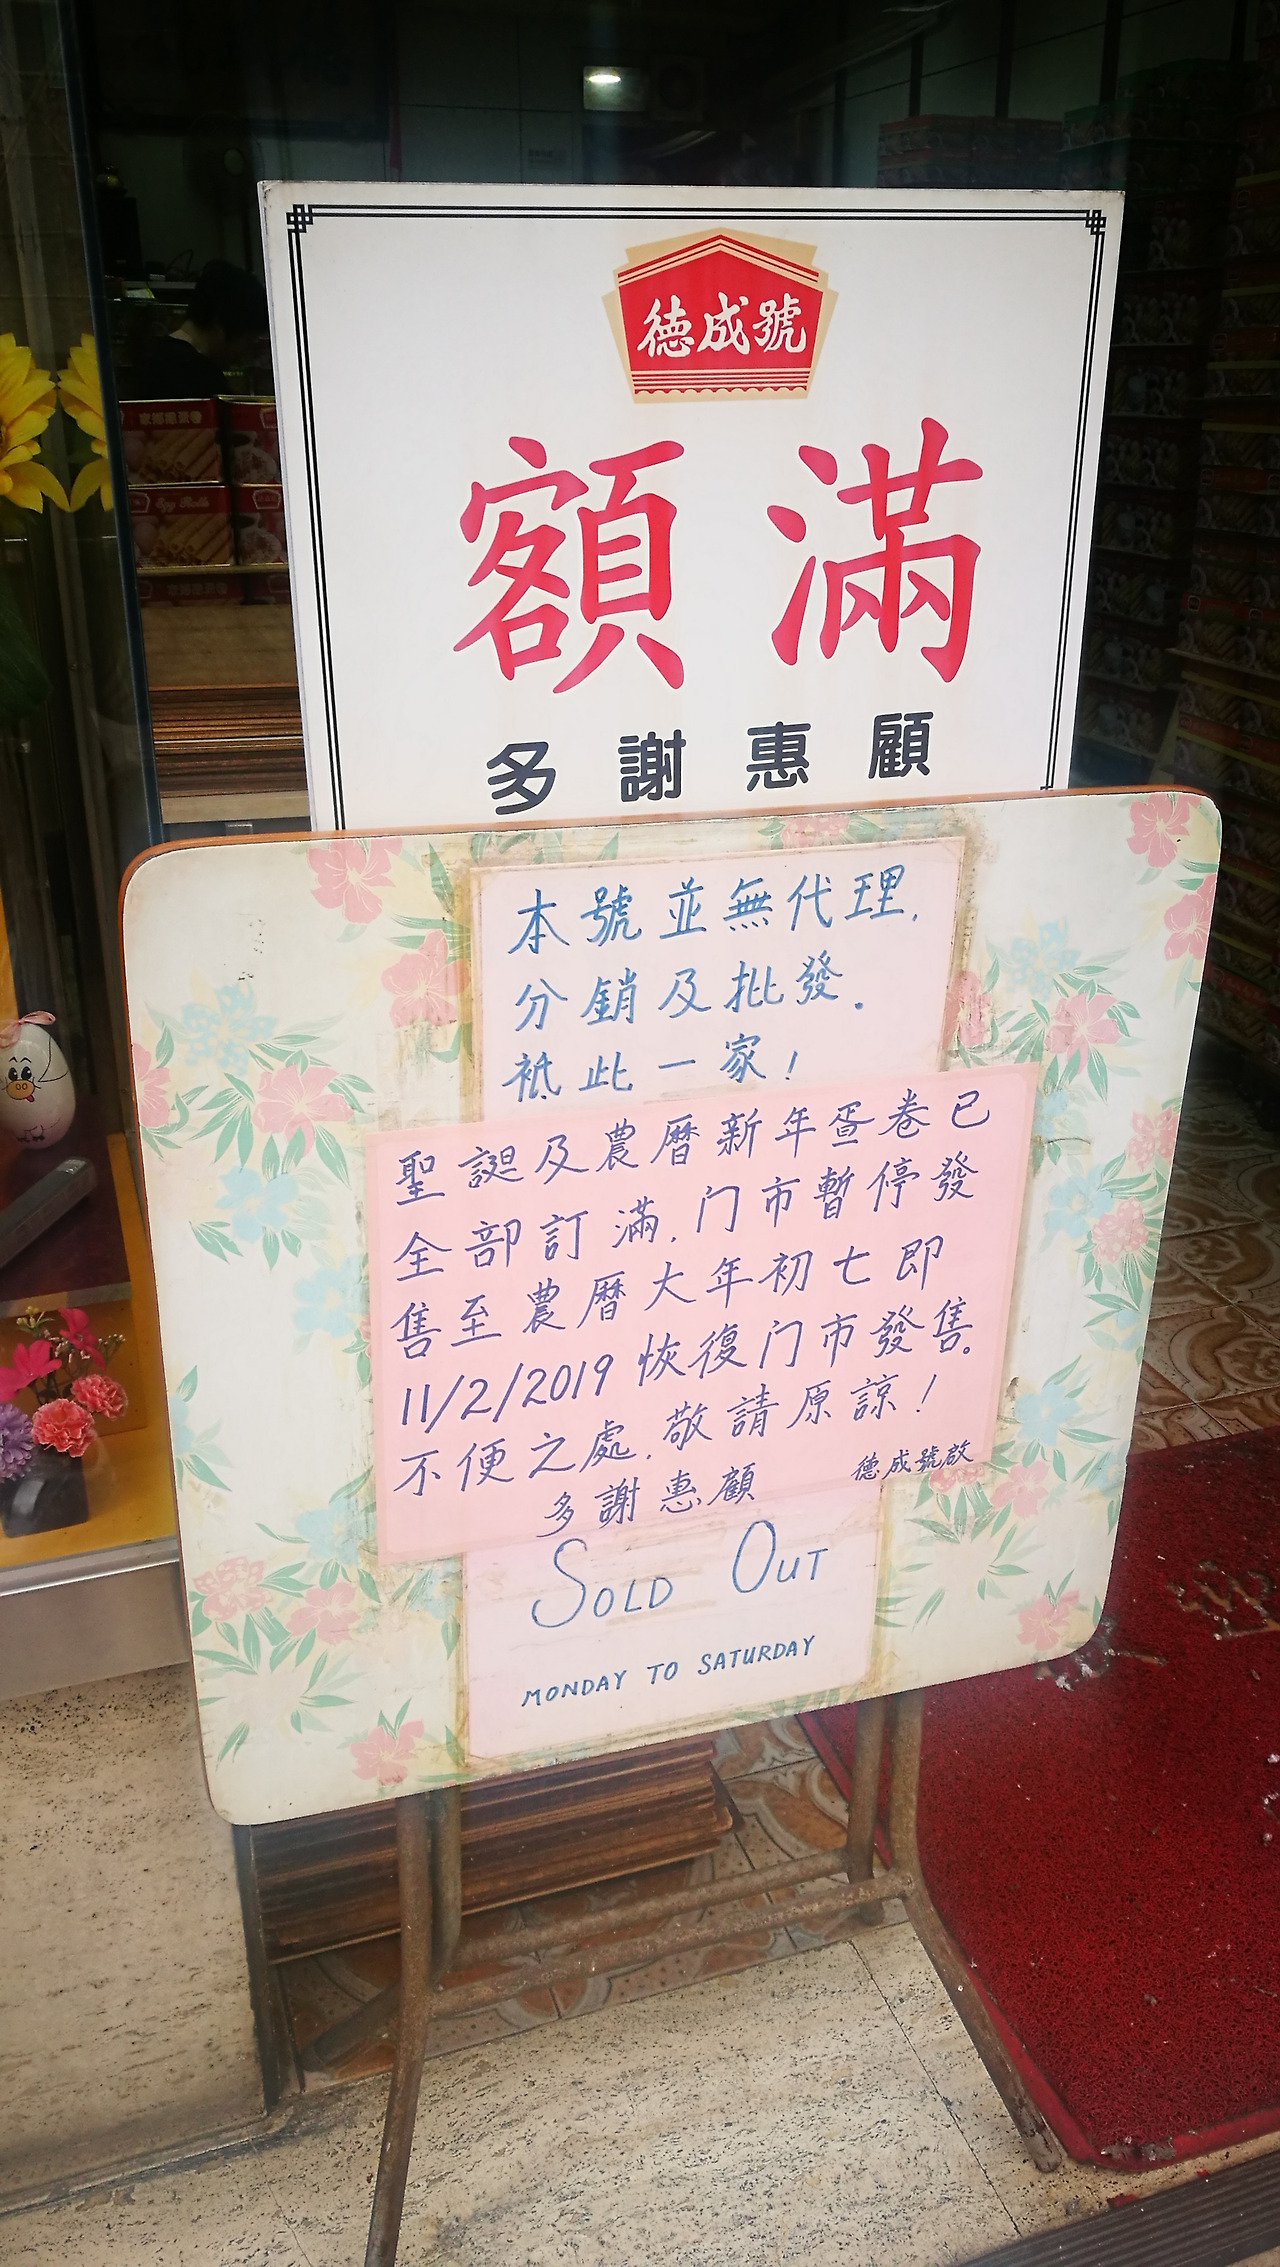 德成號
額滿
多謝惠顧
本號並無代理.
分銷及批發.
祗此一家!
聖誕及農曆新年蛋卷已
全部訂滿.门市暫停發
售至農曆大年初七即
11/2/2019恢復门市發售。
不便之處.敬請原諒!
德成號啟
多謝惠顧
SOLD OUT
MONDAY TO SATURDAY
Egg Rolls